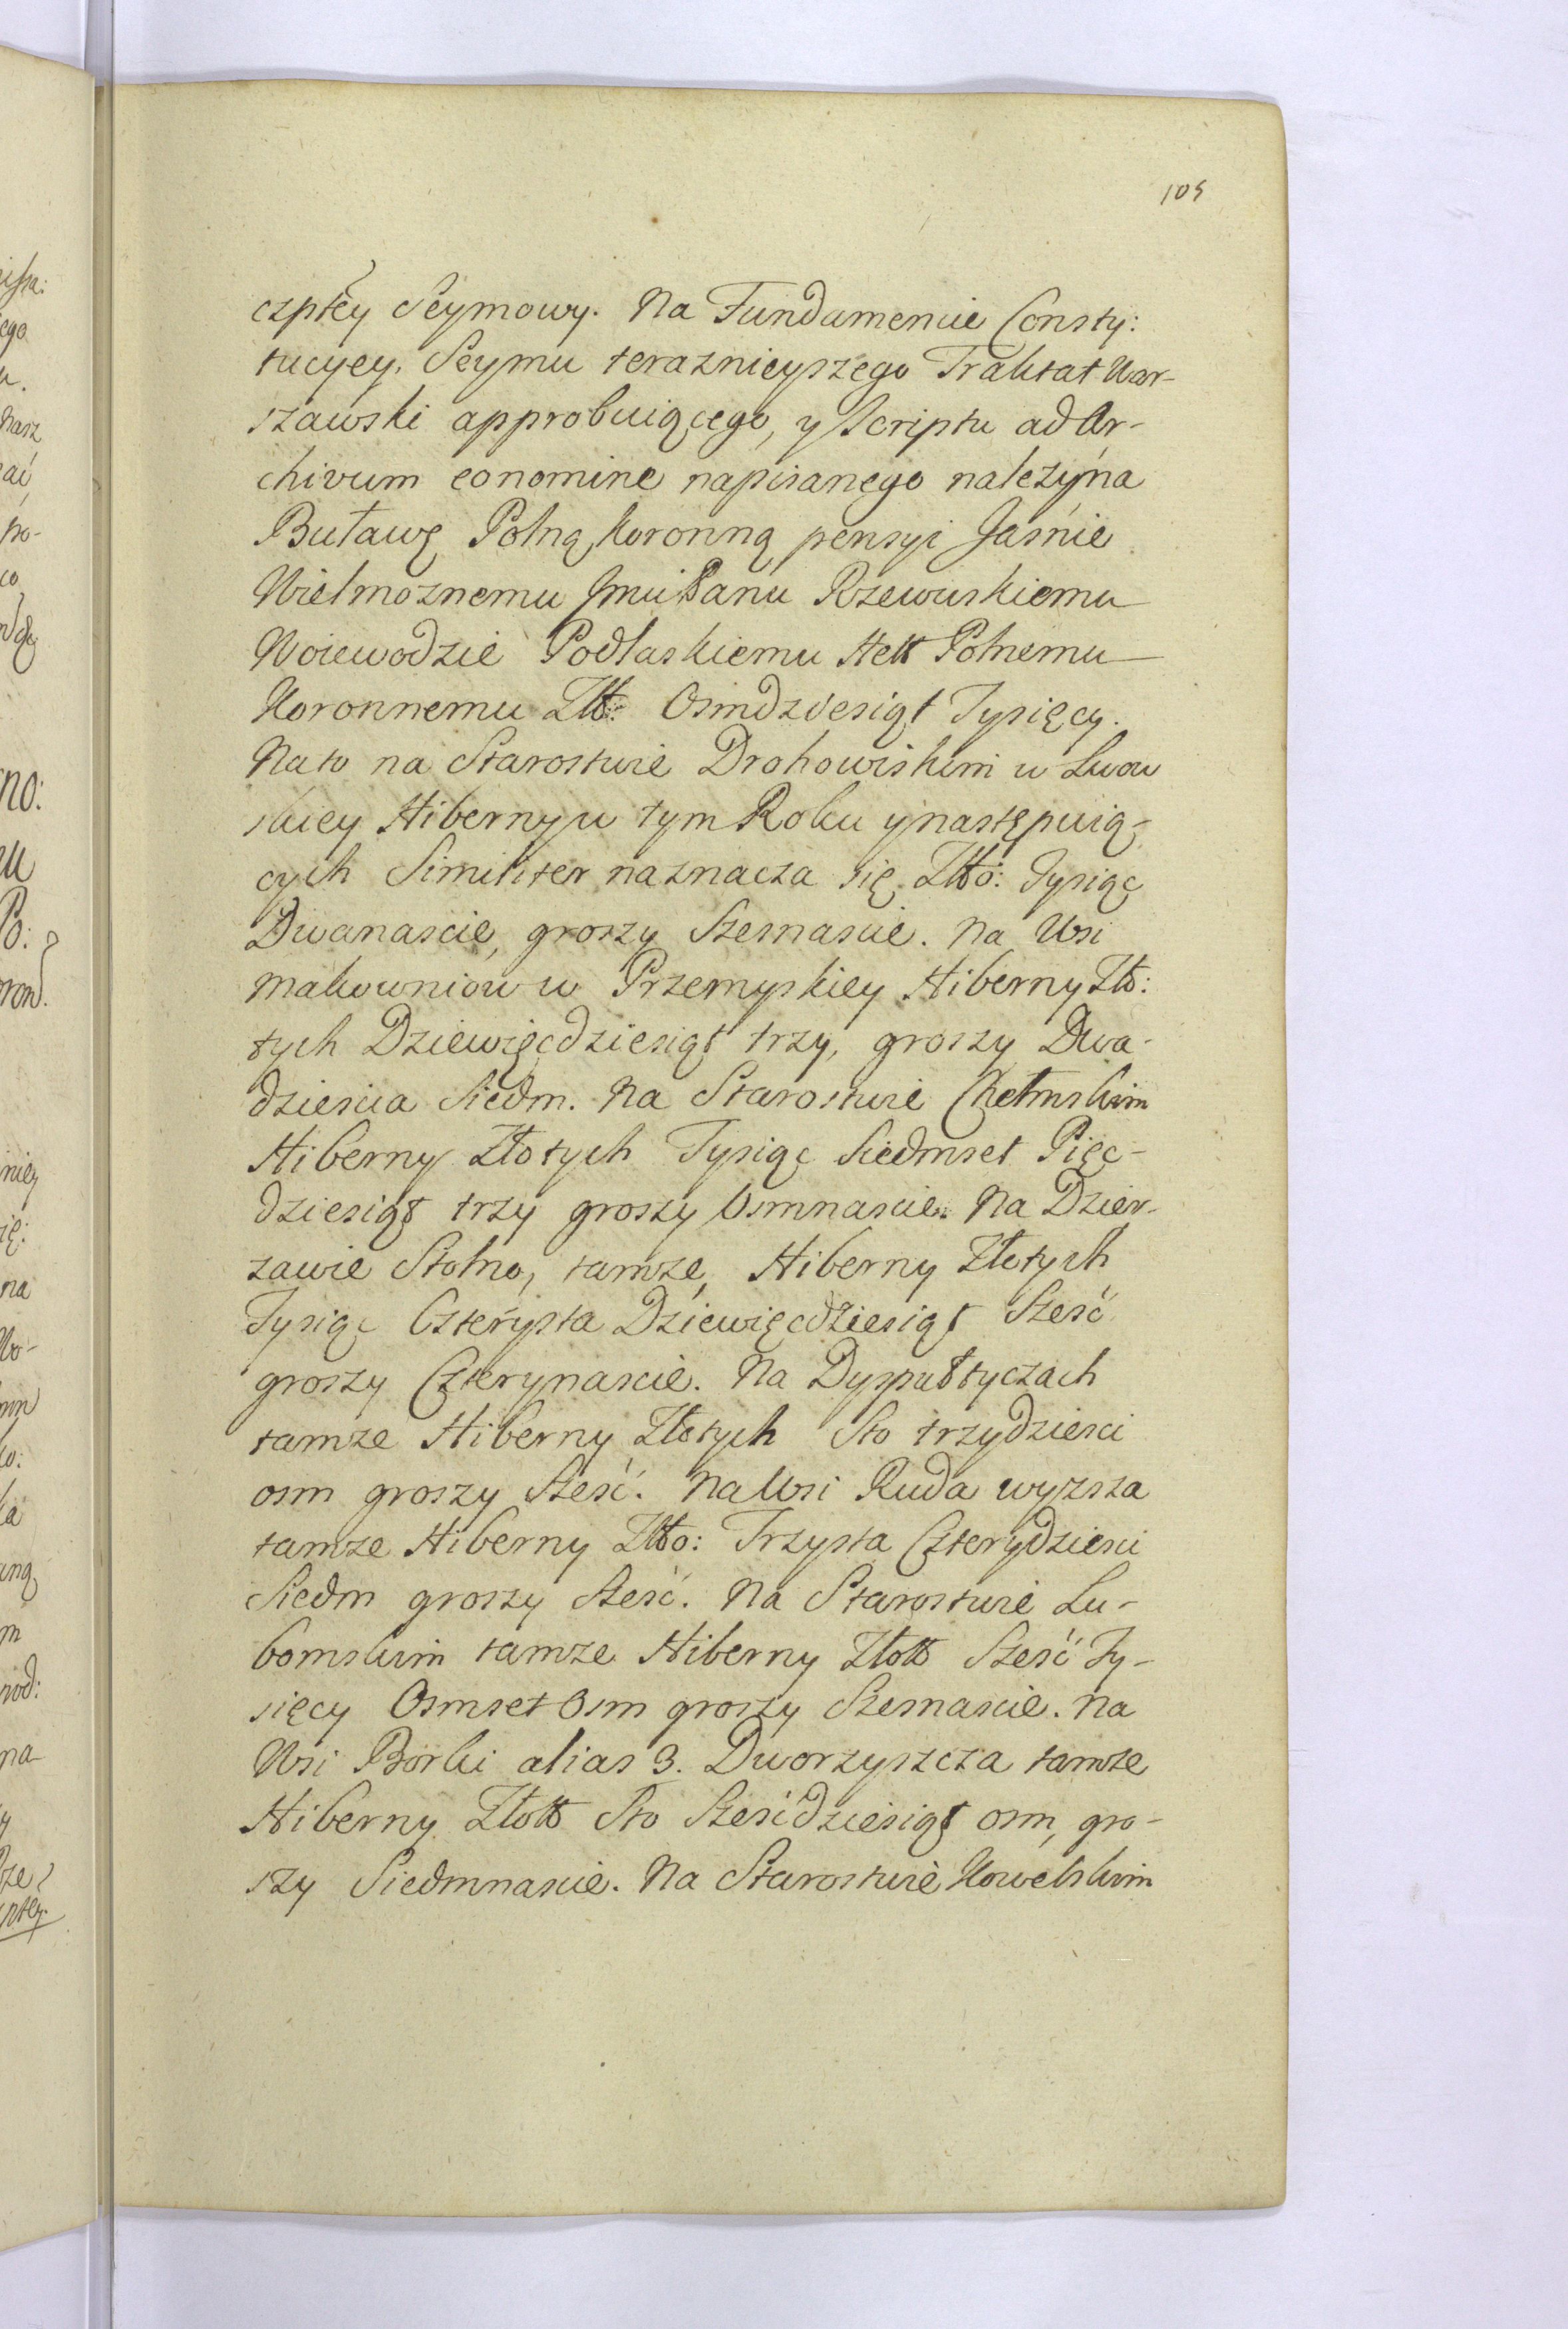 105
czpłey Seymowy. Na Fundamencie Consty:
tucyey, Seymu teraznieyszego Traktat War-
szawski approbuiącego, y Scriptu ad Ar-
chivum eo nomine napisanego należy na
Buławę Polną koronną pensyi Jaśnie
Wielmoznemu Jmu Panu Rzewuskiemu
Woiewodzie Podlaskiemu Hett Polnemu
Koronnemu Złł: Osmdziesiąt Tysięcy.
Na to na Starostwie Drohowiskim w Lwow
skiey Hiberny w tym Roku y następuią-
cych Similiter naznacza się Złło: Tysiąc
Dwanascie, groszy Szesnascie. Na Wsi
Makowniow w Przemyskiey Hiberny Zło:
tych Dziewięcdziesiąt trzy, groszy Dwa-
dziescia Siedm. Na Starostwie Chełmskim
Hiberny Złotych Tysiąc Siedmset Pięc-
dziesiąt trzy groszy Osmnascie. Na Dzier-
zawie Stolno, tamze, Hiberny Złotych
Tysiąc Czterysta Dziewięcdziesiąt Sześć
groszy Czterynascie. Na Dyspułtyczach
tamze Hiberny Złotych Sto trzydziesci
osm groszy Sześć. Na Wsi Ruda wyzsza
tamze Hiberny Złło: Trzysta Czterydziesci
Siedm groszy Sześć. Na Starostwie Lu-
bomskim tamze Hiberny Złott Sześć Ty-
sięcy Osmset Osm groszy Szesnascie. Na
Wsi Borki alias 3. Dworzyszcza tamze
Hiberny Złott Sto Sześćdziesiąt osm, gro-
szy Siedmnascie. Na Starostwie Kowelskim